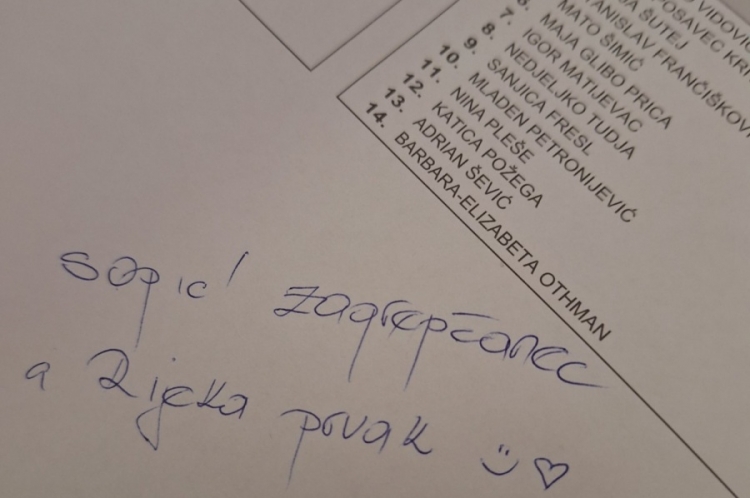 VIDOVIĆ
POSAVEC KRI
ŠUTEJ
TANISLAV FRANČIŠKOVI
MATO ŠIMIĆ
6. MAJA GLIBO PRICA
7. IGOR MATIJEVAC
8. NEDJELJKO TUDJA
9. SANJICA FRESL
10. MLADEN PETRONIJEVIĆ
11. NINA PLEŠE
12. KATICA POŽEGA
13. ADRIAN ŠEVIĆ
14. BARBARA-ELIZABETA OTHMAN
Sopić zagrepčanec
a Rijeka prvak :) ♡